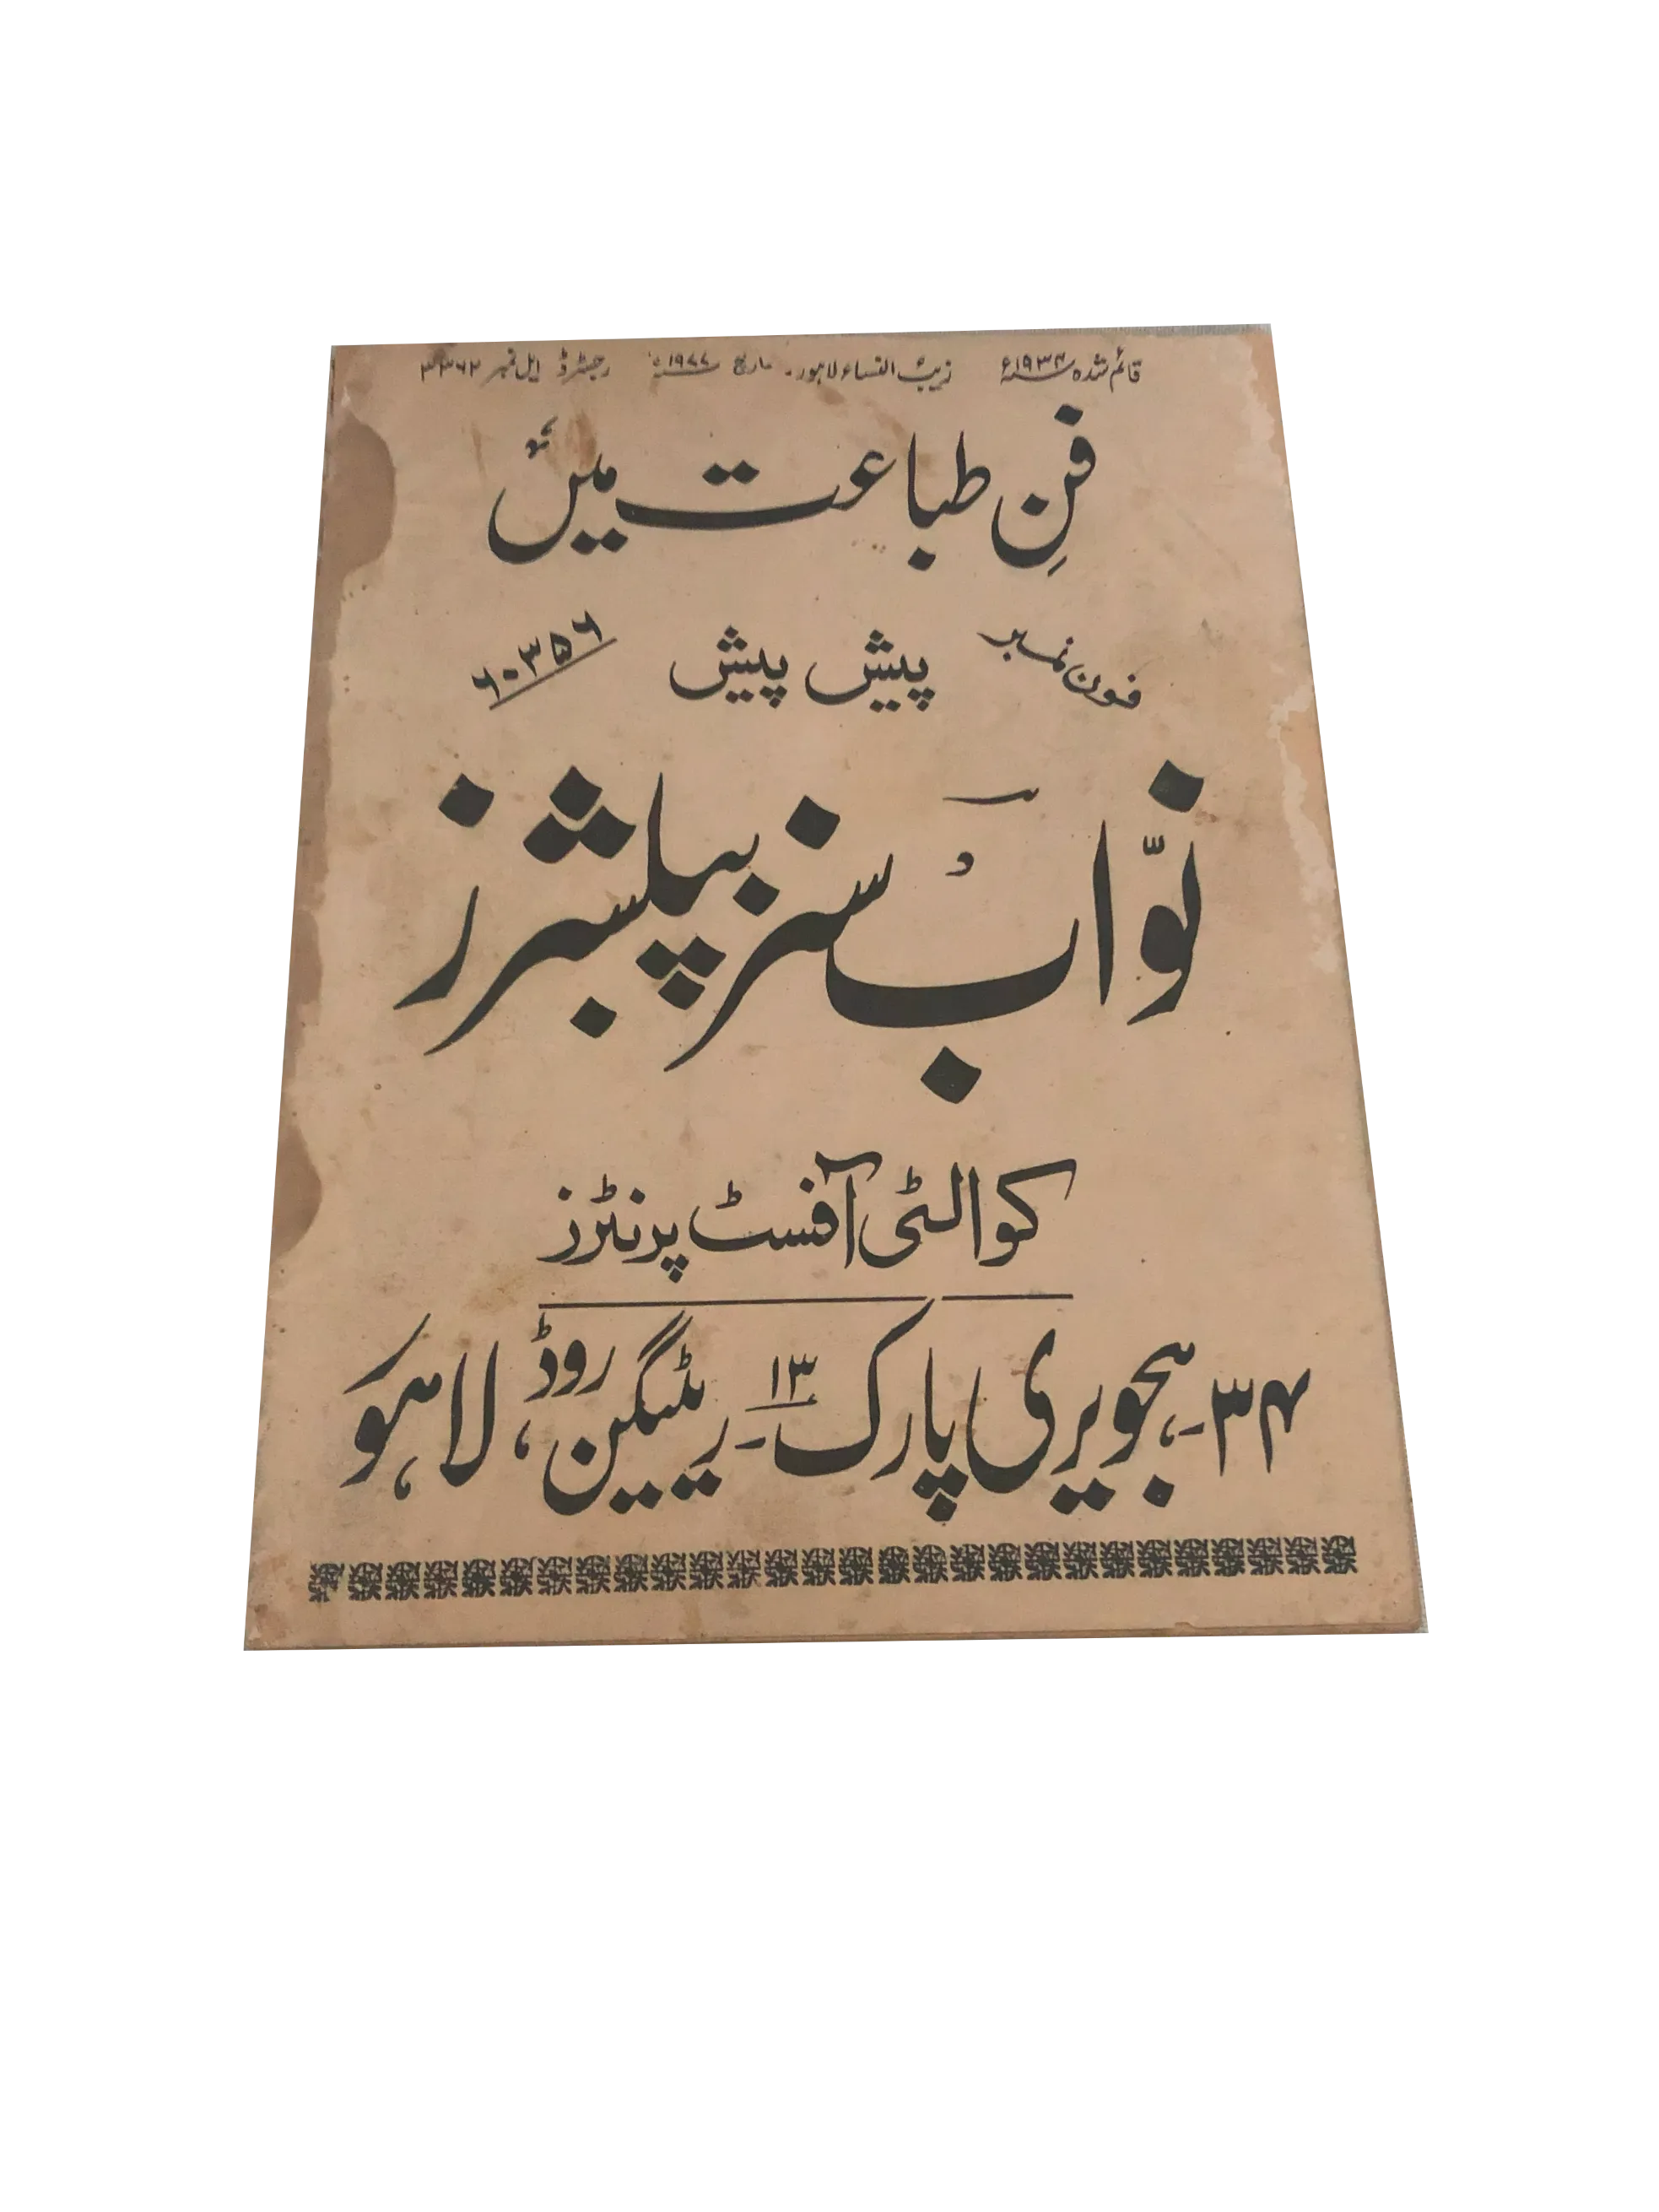 قائم شدہ ۱۹۳۴ء زیب النساء لاہور۔ مارچ ۱۹۷۷ء رجسٹرڈ ایل نمبر ۳۳۶۲
فنِ طباعت میں
فون نمبر پیش پیش ۶۰۳۵۶
نوّاب سنز پبلشرز
کوالٹی آفسٹ پرنٹرز
۳۴۔ ہجویری پارک ۱۳۔ ریٹیگن روڈ، لاہور